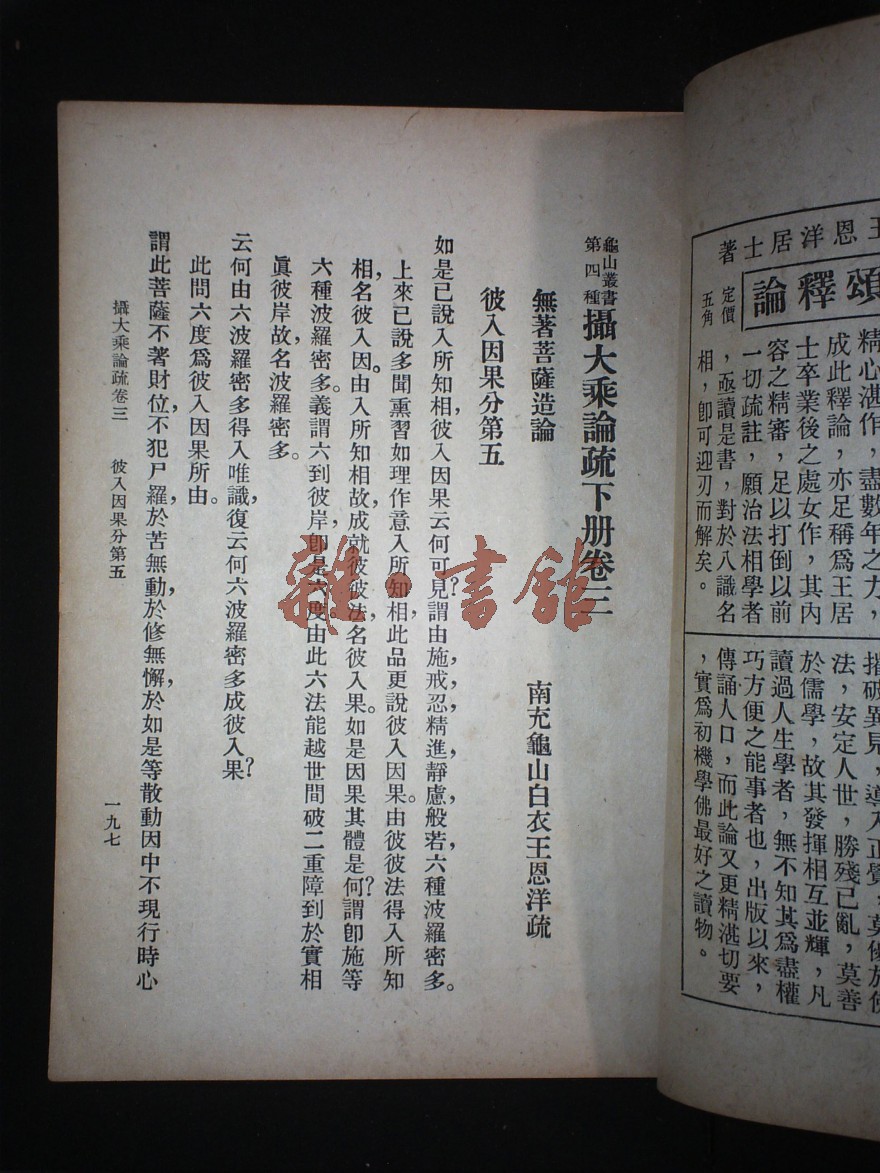 王恩洋居士著
頌釋論
定價
五角
精心湛作，盡數年之力，
成此釋論，亦足稱爲王居
士卒業後之處女作，其內
容之精審，足以打倒以前
一切疏註，願治法相學者
，亟讀是書，對於八識名
相，卽可迎刃而解矣。
摧破異見，導入正覺，莫優於佛
法，安定人世，勝殘已亂，莫善
於儒學，故其發揮相互並輝，凡
讀過人生學者，無不知其爲盡權
巧方便之能事者也，出版以來，
傳誦人口，而此論又更精湛切要
，實爲初機學佛最好之讀物。
龜山叢書
第四種
攝大乘論疏下册卷三
無著菩薩造論
南充龜山白衣王恩洋疏
彼入因果分第五
如是已說入所知相，彼入因果云何可見？謂由施，戒，忍，精進，靜慮，般若，六種波羅密多。
上來已說多聞熏習如理作意入所知相，此品更說彼入因果。由彼彼法得入所知
相，名彼入因。由入所知相故，成就彼彼法名彼入果。如是因果其體是何？謂卽施等
六種波羅密多。義謂六到彼岸，卽是六度。由此六法能越世間破二重障到於實相
眞彼岸故，名波羅密多。
云何由六波羅密多得入唯識，復云何六波羅密多成彼入果？
此問六度爲彼入因果所由。
謂此菩薩不著財位，不犯尸羅，於苦無動，於修無懈，於如是等散動因中不現行時心
攝大乘論疏卷三　彼入因果分第五
一九七
雜·書館